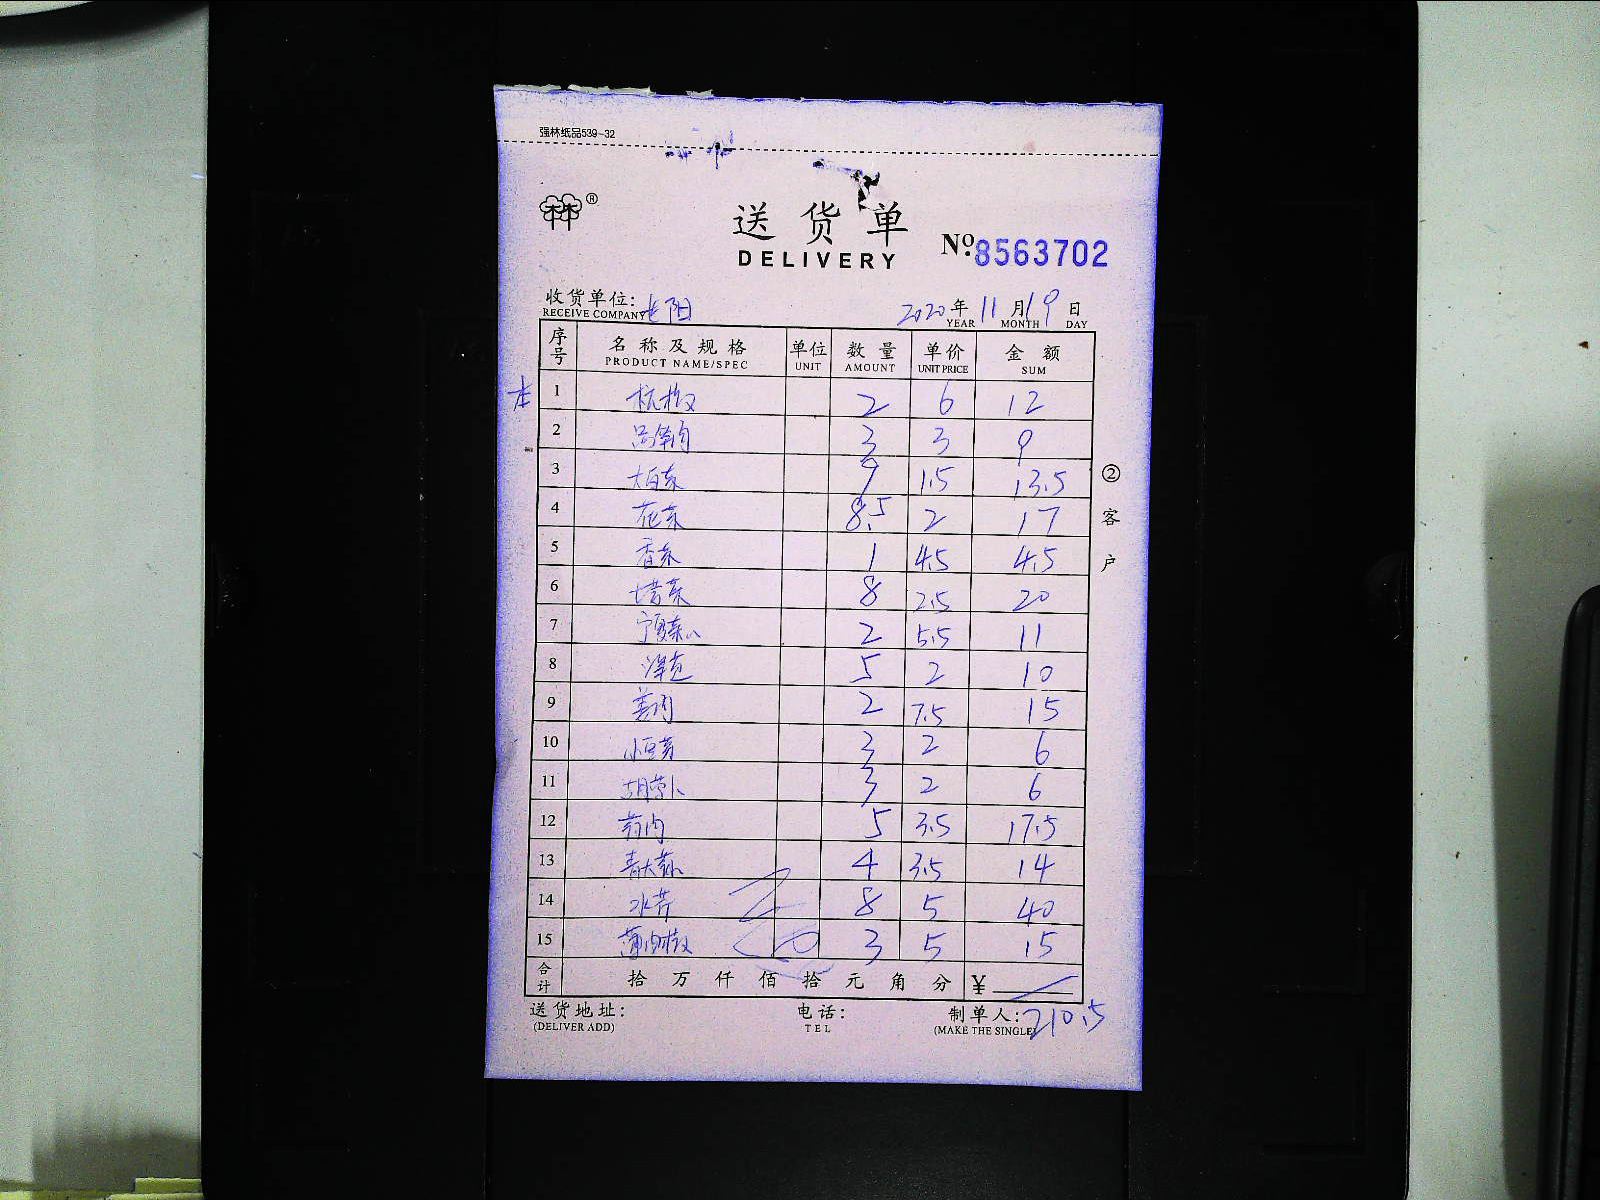 强林纸品539-32
林林®
送货单
DELIVERY
№:8563702
收货单位: 阳 2020年11月19日
RECEIVE COMPANY YEAR MONTH DAY
序号 名称及规格 单位 数量 单价 金额
PRODUCT NAME/SPEC UNIT AMOUNT UNIT PRICE SUM
1 杭椒 2 6 12
2 3 3 9
3 大白菜 9 1.5 13.5
4 花菜 8.5 2 17
5 香菜 1 4.5 4.5
6 塔菜 8 2.5 20
7 2 5.5 11
8 洋芋 5 2 10
9 姜肉 2 7.5 15
10 小豆芽 3 2 6
11 胡萝卜 3 2 6
12 5 3.5 17.5
13 青大蒜 4 3.5 14
14 水芹 8 5 40
15 3 5 15
②客户
合计 拾万仟佰拾元角分 ¥
210.5
送货地址: 电话: 制单人:
(DELIVER ADD) TEL (MAKE THE SINGLE)